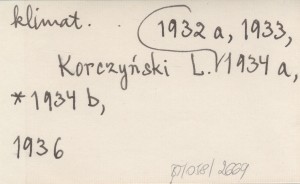 klimat. . 1932 a, 1933,
Korczyński L. 1934 a,
* 1934 b,
1936